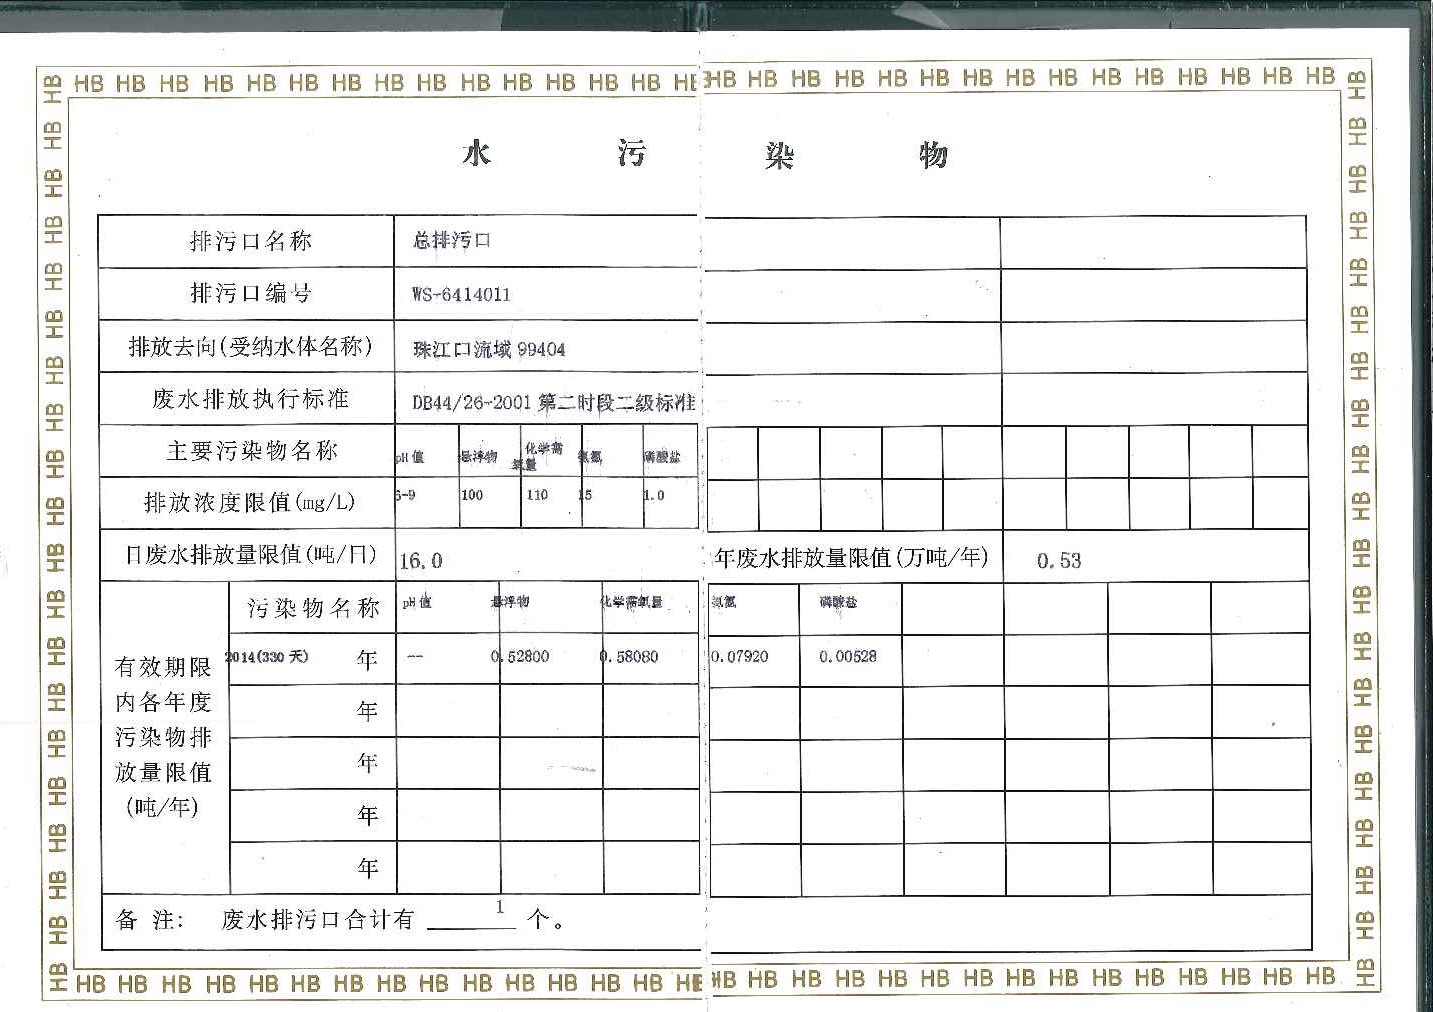 HB HB HB HB HB HB HB HB HB HB HB HB HB HB HB HB HB HB HB HB HB HB HB HB HB HB HB HB HB HB
水 污 染 物
排污口名称 总排污口
排污口编号 WS-6414011
排放去向(受纳水体名称) 珠江口流域 99404
废水排放执行标准 DB44/26-2001 第二时段二级标准
主要污染物名称 pH 值 悬浮物 化学需氧量 氨氮 磷酸盐
排放浓度限值(mg/L) 6-9 100 110 15 1.0
日废水排放量限值(吨/日) 16.0 年废水排放量限值(万吨/年) 0.53
有效期限内各年度污染物排放量限值(吨/年)
污染物名称 pH 值 悬浮物 化学需氧量 氨氮 磷酸盐
2014(330 天) 年 -- 0.52800 0.58080 0.07920 0.00528
年
年
年
年
备 注: 废水排污口合计有 1 个。
HB HB HB HB HB HB HB HB HB HB HB HB HB HB HB HB HB HB HB HB HB HB HB HB HB HB HB HB HB HB